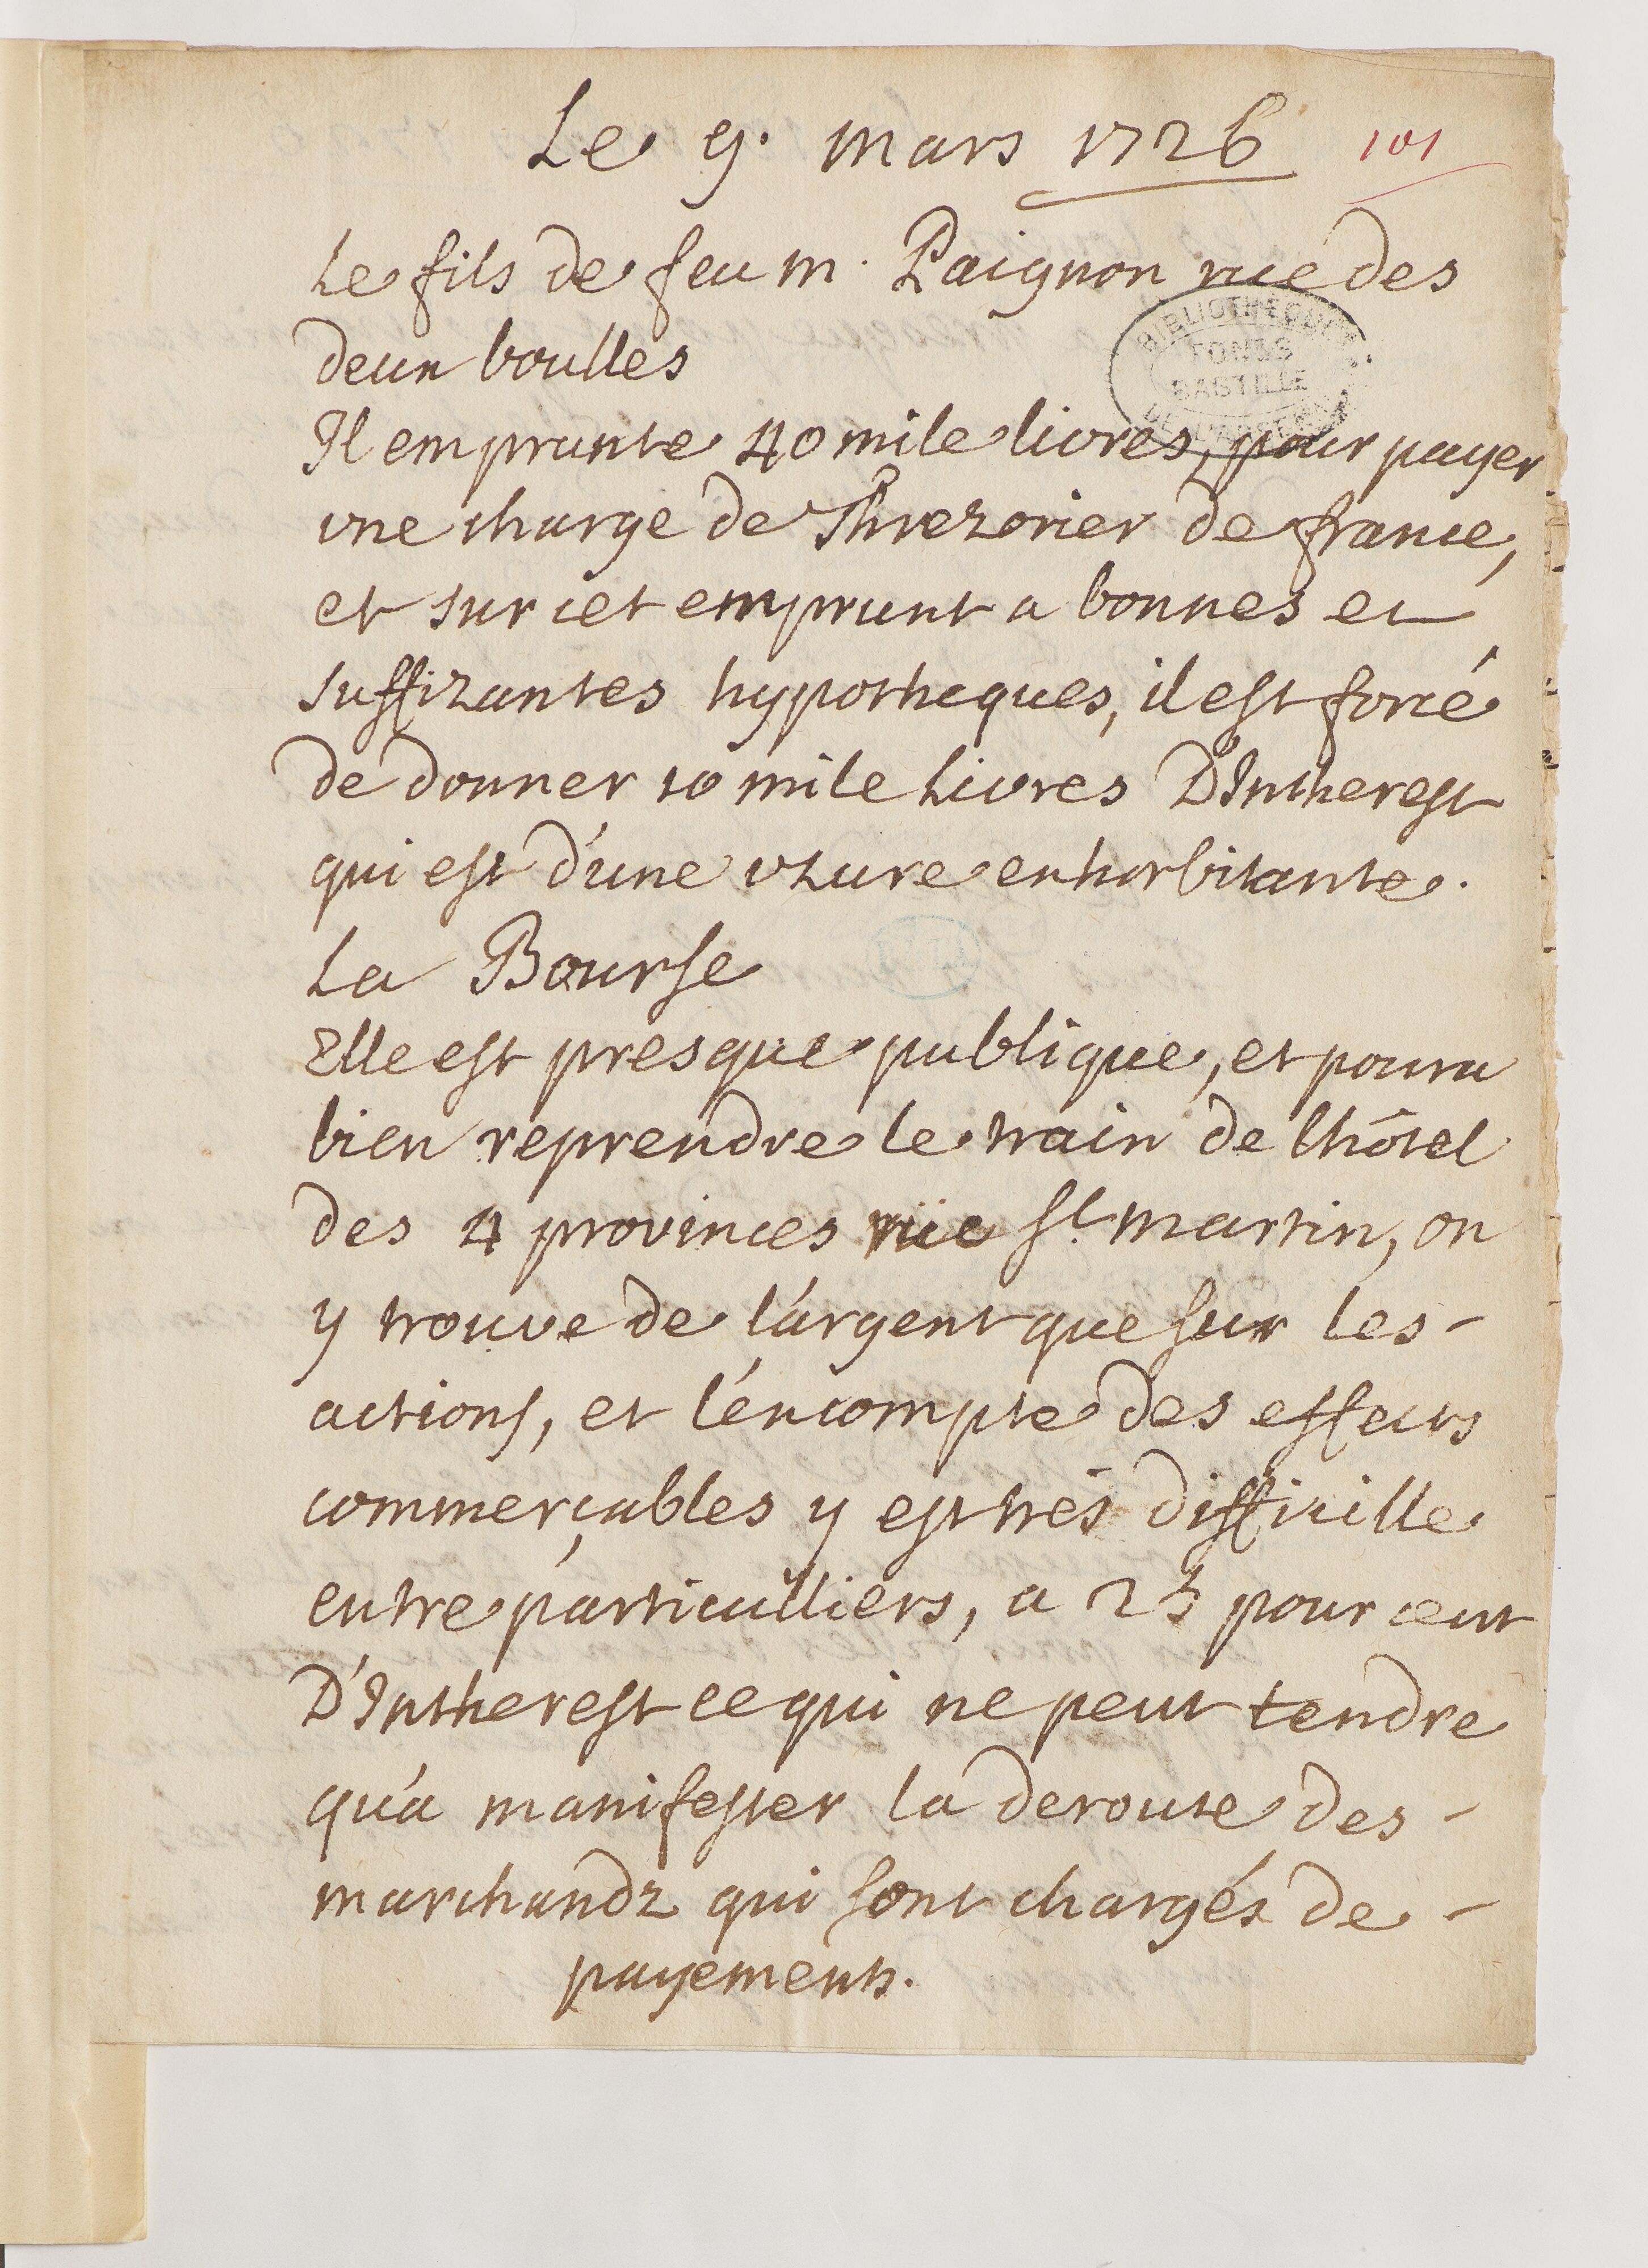 Le 9. mars 1726 101
Le fils de feu m. Paignon rue des
deux boulles
Il emprunte 40 mile livres, pour payer
une charge de Thrézorier de france,
et sur cet emprunt a bonnes et
suffizantes hypotheques, il est forcé
de donner 10 mile Livres D'Intherest
qui est d'une uzure exhorbitante.
La Bourse
Elle est presque publique, et poura
bien reprendre le train de l'hôtel
des 4 provinces rüe St. martin, on
y trouve de l'argent que sur les-
actions, et l'éxcompte des effects
commerçables y est trés difficille
entre particulliers, a 25 pour cent
D'Intherest ce qui ne peut tendre
qu'a manifester la deroute des-
marchandz qui sont chargés de-
payements.
BIBLIOTHEQUE
FONDS
BASTILLE
DE L'ARSENAL